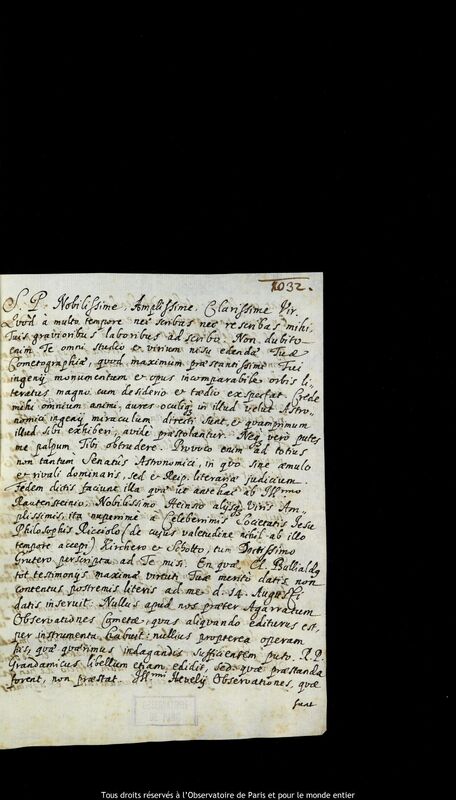 1032.
S. P. Nobilissime, Amplissime, Clarissime Vir.
Quod à multo tempore nec scribas nec rescribas mihi,
Tuis gravioribus laboribus adscribo. Non dubito
enim Te omni studio et virium nisu edendæ Tuæ
Cometographiæ, quod maximum præstantissimi Tui
ingenij monumentum et opus incomparabile orbis li-
teratus magno cum desiderio et tædio exspectat. Crede
mihi omnium animi, aures oculiq; in illud velut Astro-
nomici ingenij miraculum directi sunt, et quamprimum
illud sibi exhiberi, avide præstolantur. Neq; vero putes
me palpum Tibi obtrudere. Provoco enim ad totius
non tantum Senatus Astronomici, in quo sine æmulo
et rivali dominaris, sed et Reip. literariæ judicium.
Fidem dictis faciunt illa quæ ut antehac ab Illrmo
Rautensteinio, Nobilissimo Heinsio alijsq; Viris Am-
plissimis, ita nuperrime a Celeberrimis Societatis Iesu
Philosophis Ricciolo (de cujus valetudine nihil ab illo
tempore accepi) Kirchero et Schotto, tum Doctissimo
Grutero perscripta ad Te misi. En quæ Cl. Bullialdg
tot testimonijs maximæ virtuti Tuæ merito datis non
contentus postremis literis ad me d. 14. Augusti
datis inseruit: Nullus apud nos præter Agarratum
Observationes Cometæ, quas aliquando editurus est,
per instrumenta habuit: nullius propterea operam
his, quæ quærimus indagandis sufficientem puto. R. P.
Grandamicus libellum etiam edidit, sed quæ præstanda
forent, non præstat. Illrmi Hevelij Observationes, quæ
sunt
OBSERVATOIRE
DE PARIS
Tous droits réservés à l'Observatoire de Paris et pour le monde entier